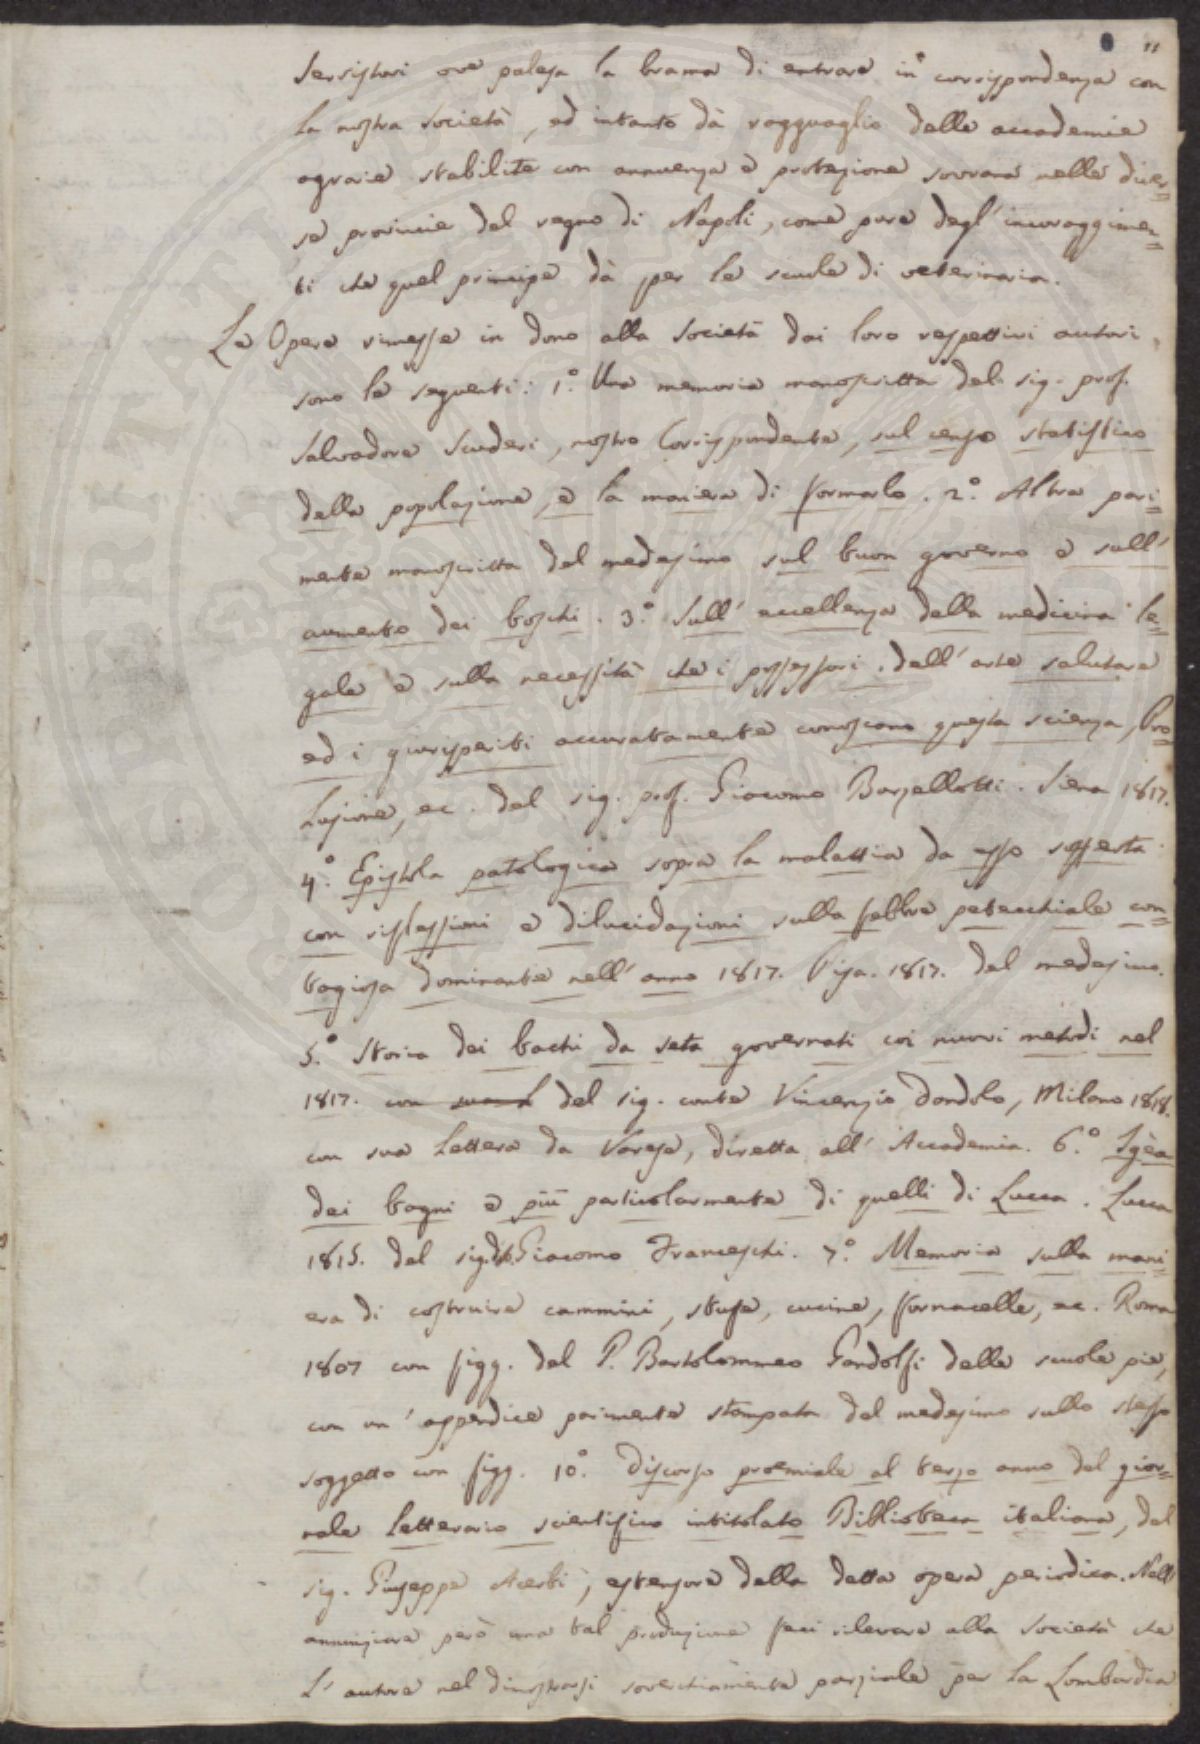 11
Sersistori ove palesa la brama di entrare in corrispondenza con
la nostra Società, ed intanto dà ragguaglio delle accademie
agrarie stabilite con annuenza e protezione sovrana nelle diver=
se provincie del regno di Napoli, come pure degl'incoraggimen=
ti che quel principe dà per le scuole di veterinaria.
Le Opere rimesse in dono alla Società dai loro respettivi autori,
sono le seguenti: 1.° Una memoria manoscritta del sig. prof.
Salvadore Scuderi, nostro Corrispondente, sul censo statistico
della popolazione, e la maniera di formarlo. 2.° Altra pari=
mente manoscritta del medesimo sul buon governo e sull'
aumento dei boschi. 3.° Sull'eccellenza della medicina le=
gale e sulla necessità che i possessori dell'arte salutare
ed i giurisperiti accuratamente conoscano questa scienza, Pro=
lusione, ec. del sig. prof. Giacomo Barzellotti. Siena 1817.
4.° Epistola patologica sopra la malattia da esso sofferta
con riflessioni e dilucidazioni sulla febbre petecchiale con=
tagiosa dominante nell'anno 1817. Pisa. 1817. del medesimo.
5.° Storia dei bachi da seta governati coi nuovi metodi nel
1817. con del sig. conte Vincenzio Dandolo, Milano 1818.
con sua lettera da Varese, diretta all'Accademia. 6.° Igèa
dei bagni e più particolarmente di quelli di Lucca. Lucca
1815. del sig. dr. Giacomo Franceschi. 7.° Memoria sulla mani=
era di costruire cammini, stufe, cucine, fornacelle, ec. Roma
1807 con figg. del P. Bartolommeo Gandolfi delle scuole pie,
con un'appendice parimente stampata del medesimo sullo stesso
soggetto con figg. 10.° Discorso proemiale al terzo anno del gior=
nale letterario scientifico intitolato Biblioteca italiana, del
sig. Giuseppe Acerbi, estensore della detta opera periodica. Nell'
annunziare però una tal produzione feci rilevare alla Società che
l'autore nel dimostrarsi soverchiamente parziale per la Lombardia